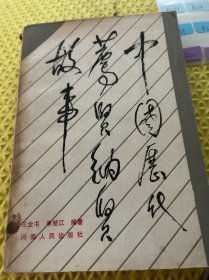 中国历代
荐贤纳贤
故事
王全书 李楚江 编著
河南人民出版社